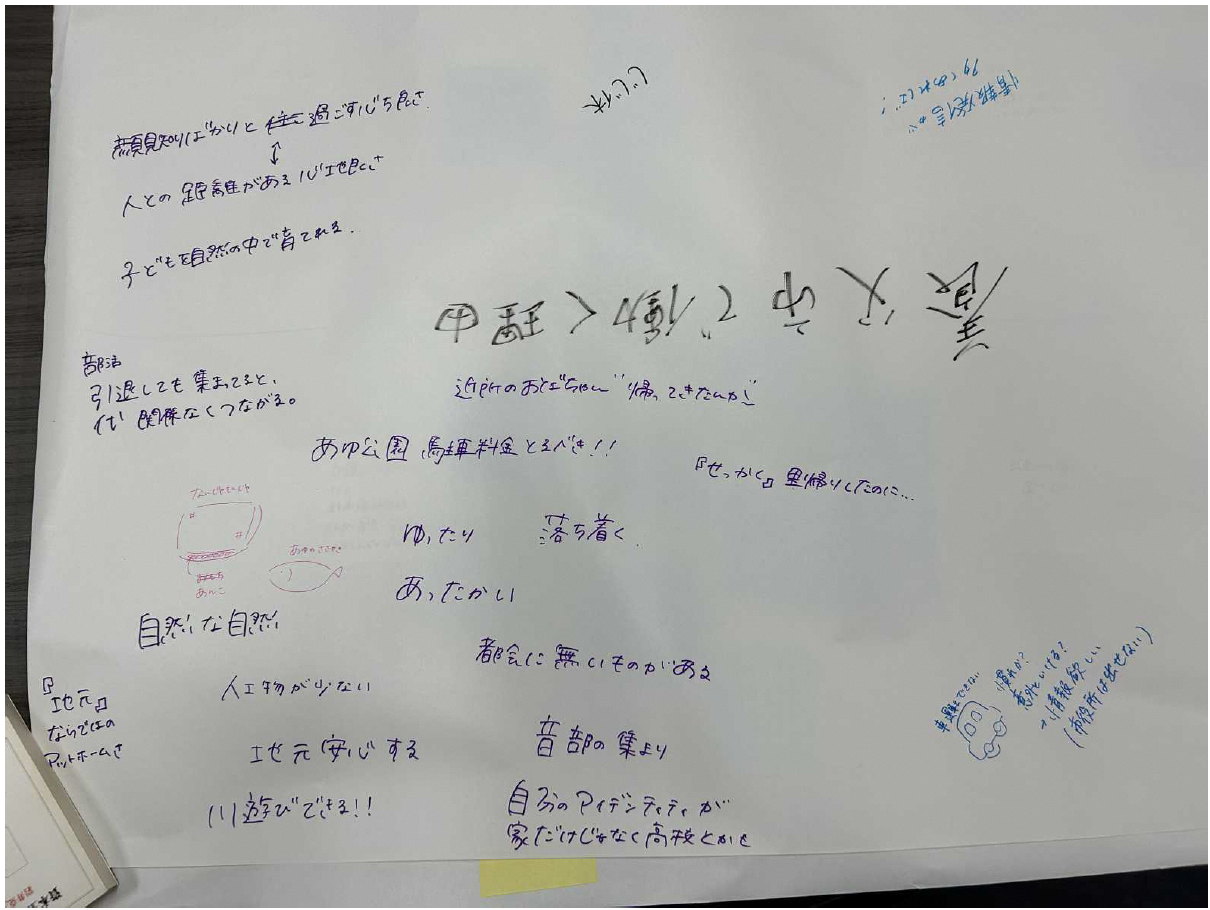 顔見知りばかりと過ごす心ち良さ
↕
人との距離がある心地良さ
子どもを自然の中で育てれる.
情報発信が
多くあれば!
養父市で働く理由
部活
引退しても集まってると、
代 関係なくつながる。
近所のおばちゃん"帰ってきたんか"
あゆ公園 駐車料金とるべき!!
『せっかく』里帰りしたのに…
ゆったり
落ち着く
あったかい
あんこ
自然な自然
都会に無いものがある
『地元』
ならではの
アットホームさ
人工物が少ない
地元安心する
音部の集まり
川遊びできる!!
自分のアイデンティティが
家だけじゃなく高校とかに
車運転できない
慣れか?
意外といける?
→情報欲しい
(市役所は出せない)